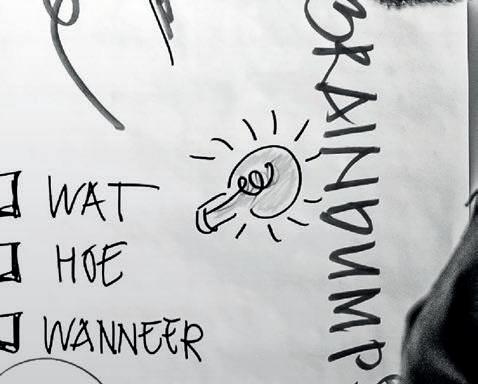 BRAINDUMP
WAT
HOE
WANNEER